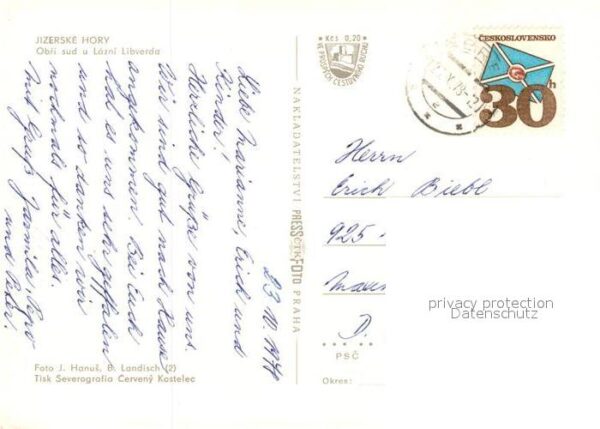 JIZERSKÉ HORY
Obří sud u Lázní Libverda
Kčs 0,20
VE PROSPĚCH CESTOVNÍHO RUCHU
ČESKOSLOVENSKO
30h
NAKLADATELSTVÍ PRESSFOTO PRAHA
ČTK
23. IV. 1978
Liebe Marianne, Erich und
Kinder!
Herzliche Grüße von uns.
Wir sind gut nach Hause
angkommen. Bei Euch
hat es uns sehr gefallen
und so danken wir
nochmals für alles.
Mit Gruß Jarmila, Pepo
und Peter.
Herrn
Erich Biebl
925 -
D.
PSČ
Okres:
privacy protection
Datenschutz
Foto J. Hanuš, B. Landisch (2)
Tisk Severografia Červený Kostelec